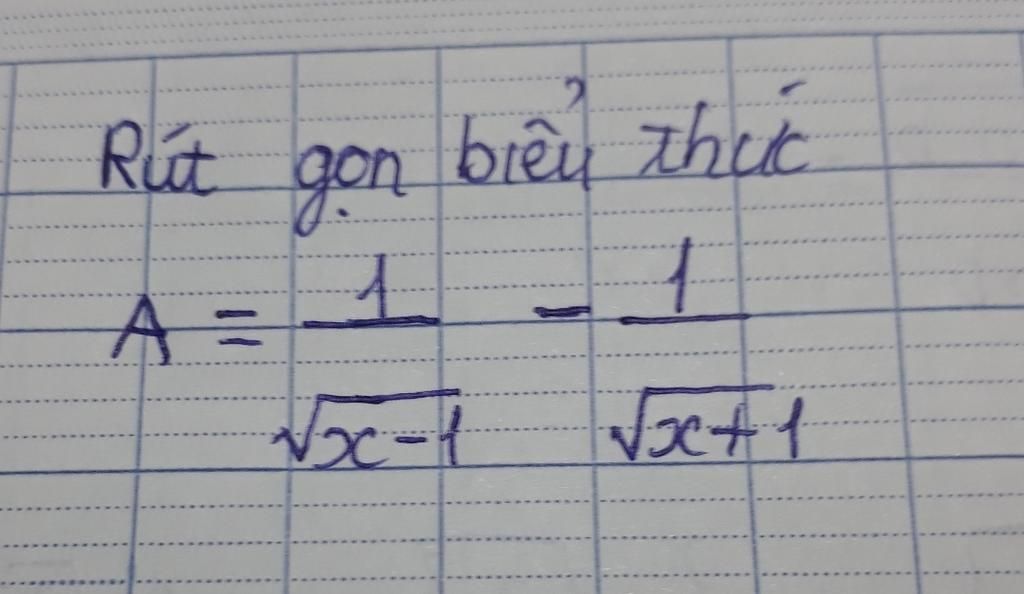 Rút gọn biểu thức
A = \frac{1}{\sqrt{x-1}} - \frac{1}{\sqrt{x+}1}